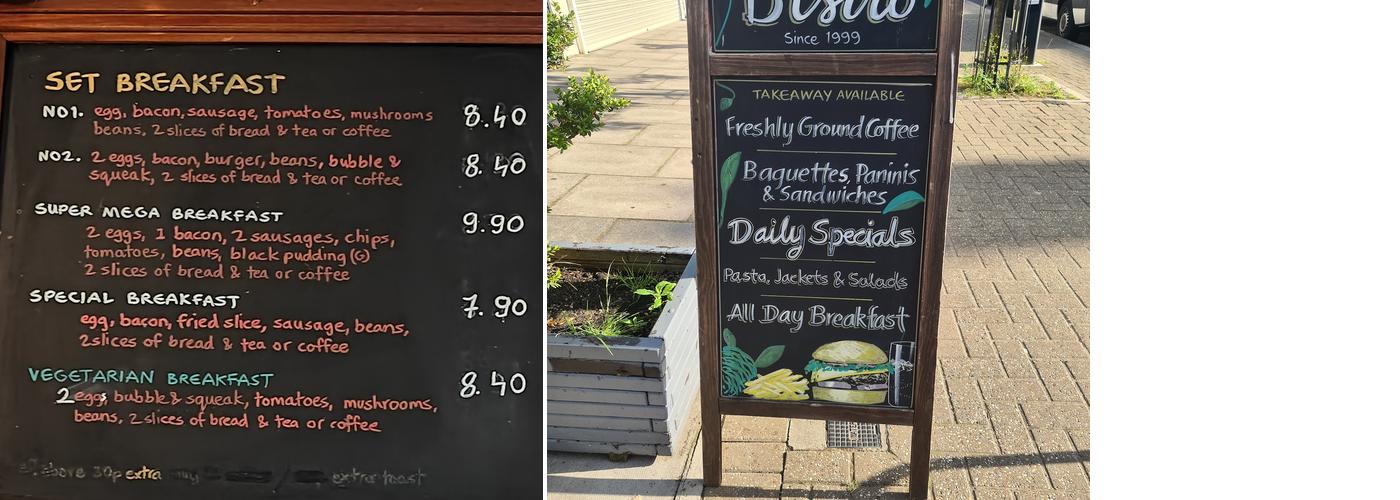 SET BREAKFAST
NO1. egg, bacon, sausage, tomatoes, mushrooms 8.40
beans, 2 slices of bread & tea or coffee
NO2. 2 eggs, bacon, burger, beans, bubble & 8.40
squeak, 2 slices of bread & tea or coffee
SUPER MEGA BREAKFAST 9.90
2 eggs, 1 bacon, 2 sausages, chips,
tomatoes, beans, black pudding (G)
2 slices of bread & tea or coffee
SPECIAL BREAKFAST 7.90
egg, bacon, fried slice, sausage, beans,
2 slices of bread & tea or coffee
VEGETARIAN BREAKFAST 8.40
2 eggs, bubble & squeak, tomatoes, mushrooms,
beans, 2 slices of bread & tea or coffee
above 30p extra extra toast
Bistro
Since 1999
TAKEAWAY AVAILABLE
Freshly Ground Coffee
Baguettes, Paninis
& Sandwiches
Daily Specials
Pasta, Jackets & Salads
All Day Breakfast